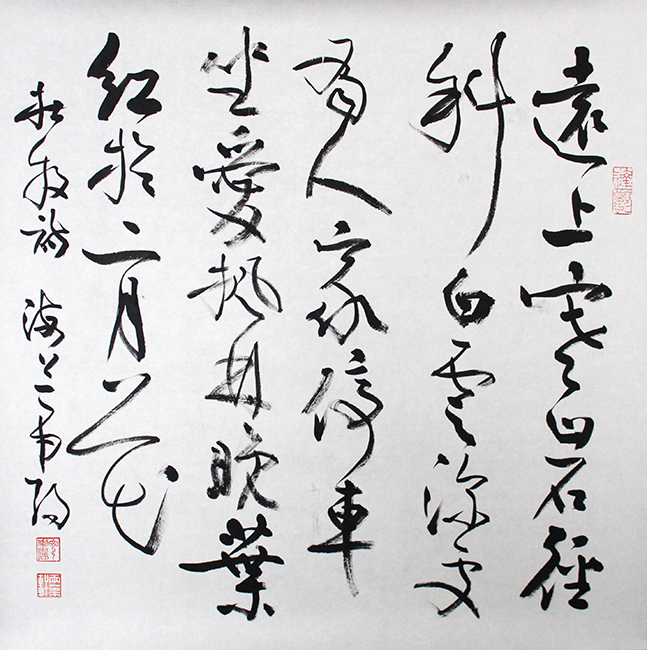 遠上寒山石徑
斜白雲深處
有人家停車
坐愛楓林晚葉
紅於二月花
杜牧詩 海